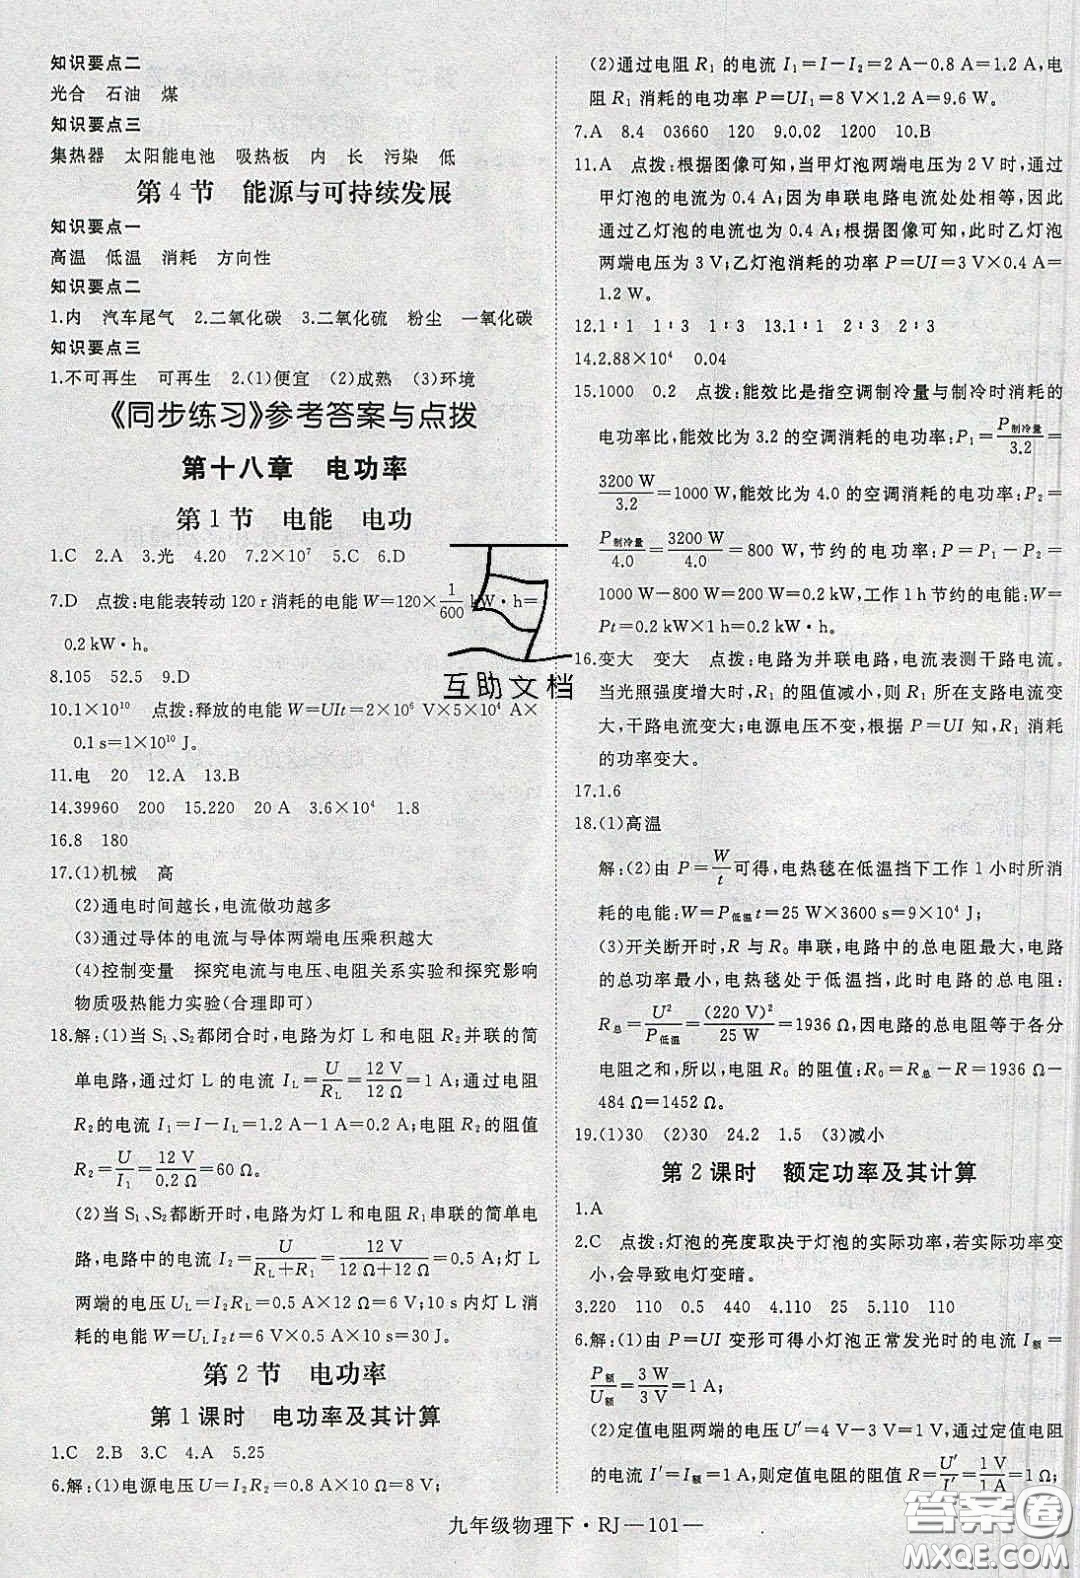 知识要点二
光合 石油 煤
知识要点三
集热器 太阳能电池 吸热板 内 长 污染 低
第4节 能源与可持续发展
知识要点一
高温 低温 消耗 方向性
知识要点二
1.内 汽车尾气 2.二氧化碳 3.二氧化硫 粉尘 一氧化碳
知识要点三
1.不可再生 可再生 2.(1)便宜 (2)成熟 (3)环境
《同步练习》参考答案与点拨
第十八章 电功率
第1节 电能 电功
1.C 2.A 3.光 4.20 7.2×10⁷ 5.C 6.D
7.D 点拨:电能表转动120 r消耗的电能W=120×1/600 kW·h=
0.2 kW·h。
8.105 52.5 9.D
10.1×10¹⁰ 点拨:释放的电能W=UIt=2×10⁶ V×5×10⁴ A×
0.1 s=1×10¹⁰ J。
11.电 20 12.A 13.B
14.39960 200 15.220 20 A 3.6×10⁴ 1.8
16.8 180
17.(1)机械 高
(2)通电时间越长,电流做功越多
(3)通过导体的电流与导体两端电压乘积越大
(4)控制变量 探究电流与电压、电阻关系实验和探究影响
物质吸热能力实验(合理即可)
18.解:(1)当S₁、S₂都闭合时,电路为灯L和电阻R₂并联的简
单电路,通过灯L的电流I_L=U/R_L=12 V/12 Ω=1 A;通过电阻
R₂的电流I₁=I-I_L=1.2 A-1 A=0.2 A;电阻R₂的阻值
R₂=U/I₁=12 V/0.2 Ω=60 Ω。
(2)当S₁、S₂都断开时,电路为灯L和电阻R₁串联的简单电
路,电路中的电流I₂=U/(R_L+R₁)=12 V/(12 Ω+12 Ω)=0.5 A;灯L
两端的电压U_L=I₂R_L=0.5 A×12 Ω=6 V;10 s内灯L消
耗的电能W=U_LI₂t=6 V×0.5 A×10 s=30 J。
第2节 电功率
第1课时 电功率及其计算
1.C 2.B 3.C 4.A 5.25
6.解:(1)电源电压U=I₂R₂=0.8 A×10 Ω=8 V;
(2)通过电阻R₁的电流I₁=I-I₂=2 A-0.8 A=1.2 A,电
阻R₁消耗的电功率P=UI₁=8 V×1.2 A=9.6 W。
7.A 8.4 03660 120 9.0.02 1200 10.B
11.A 点拨:根据图像可知,当甲灯泡两端电压为2 V时,通过
甲灯泡的电流为0.4 A;因为串联电路电流处处相等,因此
通过乙灯泡的电流也为0.4 A;根据图像可知,此时乙灯泡
两端电压为3 V;乙灯泡消耗的功率P=UI=3 V×0.4 A=
1.2 W。
12.1∶1 1∶3 1∶3 13.1∶1 2∶3 2∶3
14.2.88×10⁴ 0.04
15.1000 0.2 点拨:能效比是指空调制冷量与制冷时消耗的
电功率比,能效比为3.2的空调消耗的电功率:P₁=P制冷量/3.2=
3200 W/3.2=1000 W,能效比为4.0的空调消耗的电功率:P₂=
P制冷量/4.0=3200 W/4.0=800 W,节约的电功率:P=P₁-P₂=
1000 W-800 W=200 W=0.2 kW,工作1 h节约的电能:W=
Pt=0.2 kW×1 h=0.2 kW·h。
16.变大 变大 点拨:电路为并联电路,电流表测干路电流。
当光照强度增大时,R₁的阻值减小,则R₁所在支路电流变
大,干路电流变大;电源电压不变,根据P=UI知,R₁消耗
的功率变大。
17.1.6
18.(1)高温
解:(2)由P=W/t可得,电热毯在低温挡下工作1小时所消
耗的电能:W=P低温t=25 W×3600 s=9×10⁴ J;
(3)开关断开时,R与R₀串联,电路中的总电阻最大,电路
的总功率最小,电热毯处于低温挡,此时电路的总电阻:
R总=U²/P低温=(220 V)²/25 W=1936 Ω,因电路的总电阻等于各分
电阻之和,所以,电阻R₀的阻值:R₀=R总-R=1936 Ω-
484 Ω=1452 Ω。
19.(1)30 (2)30 24.2 1.5 (3)减小
第2课时 额定功率及其计算
1.A
2.C 点拨:灯泡的亮度取决于灯泡的实际功率,若实际功率变
小,会导致电灯变暗。
3.220 110 0.5 440 4.110 25 5.110 110
6.解:(1)由P=UI变形可得小灯泡正常发光时的电流I额=
P额/U额=3 W/3 V=1 A;
(2)定值电阻两端的电压U′=4 V-3 V=1 V;通过定值电阻
的电流I′=I额=1 A,则定值电阻的阻值R=U′/I′=1 V/1 A=1 Ω;
九年级物理下·RJ—101—
互助文档
答案圈
MXQE.COM